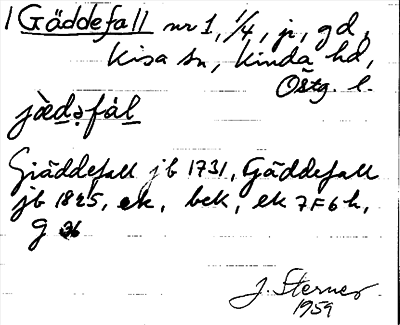 Gäddefall nr 1, 1/4, jr, gd,
Kisa sn, Kinda hd,
Östg. l.
jæ̀dəfàl
Giäddefall jb 1731, Gäddefall
jb 1825, ek, bek, ek 7F6h,
g 36
J. Sterner
1959